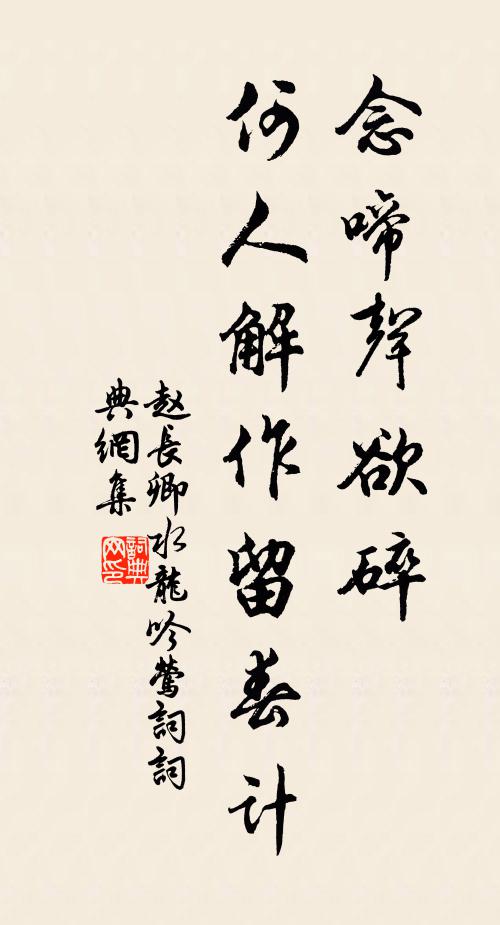 念啼聲欲碎
何人解作留春計
赵長卿水龍吟鶯詞詞
典網集
詞典
网印